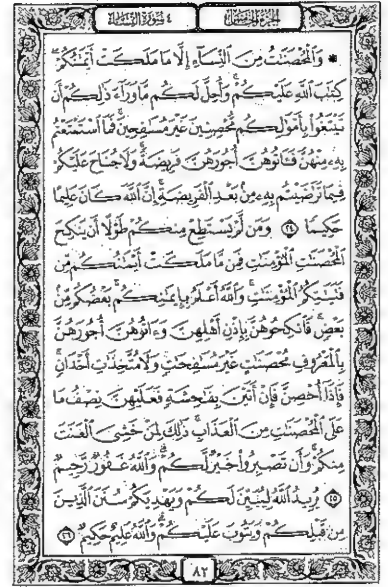 الجزء الخامس ٤ سورة النساء
* وَالْمُحْصَنَاتُ مِنَ النِّسَاءِ إِلَّا مَا مَلَكَتْ أَيْمَانُكُمْ
كِتَابَ اللَّهِ عَلَيْكُمْ وَأُحِلَّ لَكُم مَّا وَرَاءَ ذَلِكُمْ أَن
تَبْتَغُوا بِأَمْوَالِكُم مُّحْصِنِينَ غَيْرَ مُسَافِحِينَ فَمَا اسْتَمْتَعْتُم
بِهِ مِنْهُنَّ فَآتُوهُنَّ أُجُورَهُنَّ فَرِيضَةً وَلَا جُنَاحَ عَلَيْكُمْ
فِيمَا تَرَاضَيْتُم بِهِ مِن بَعْدِ الْفَرِيضَةِ إِنَّ اللَّهَ كَانَ عَلِيمًا
حَكِيمًا ٢٤ وَمَن لَّمْ يَسْتَطِعْ مِنكُمْ طَوْلًا أَن يَنكِحَ
الْمُحْصَنَاتِ الْمُؤْمِنَاتِ فَمِن مَّا مَلَكَتْ أَيْمَانُكُم مِّن
فَتَيَاتِكُمُ الْمُؤْمِنَاتِ وَاللَّهُ أَعْلَمُ بِإِيمَانِكُم بَعْضُكُم مِّن
بَعْضٍ فَانكِحُوهُنَّ بِإِذْنِ أَهْلِهِنَّ وَآتُوهُنَّ أُجُورَهُنَّ
بِالْمَعْرُوفِ مُحْصَنَاتٍ غَيْرَ مُسَافِحَاتٍ وَلَا مُتَّخِذَاتِ أَخْدَانٍ
فَإِذَا أُحْصِنَّ فَإِنْ أَتَيْنَ بِفَاحِشَةٍ فَعَلَيْهِنَّ نِصْفُ مَا
عَلَى الْمُحْصَنَاتِ مِنَ الْعَذَابِ ذَلِكَ لِمَنْ خَشِيَ الْعَنَتَ
مِنكُمْ وَأَن تَصْبِرُوا خَيْرٌ لَّكُمْ وَاللَّهُ غَفُورٌ رَّحِيمٌ
٢٥ يُرِيدُ اللَّهُ لِيُبَيِّنَ لَكُمْ وَيَهْدِيَكُمْ سُنَنَ الَّذِينَ
مِن قَبْلِكُمْ وَيَتُوبَ عَلَيْكُمْ وَاللَّهُ عَلِيمٌ حَكِيمٌ ٢٦
٨٢